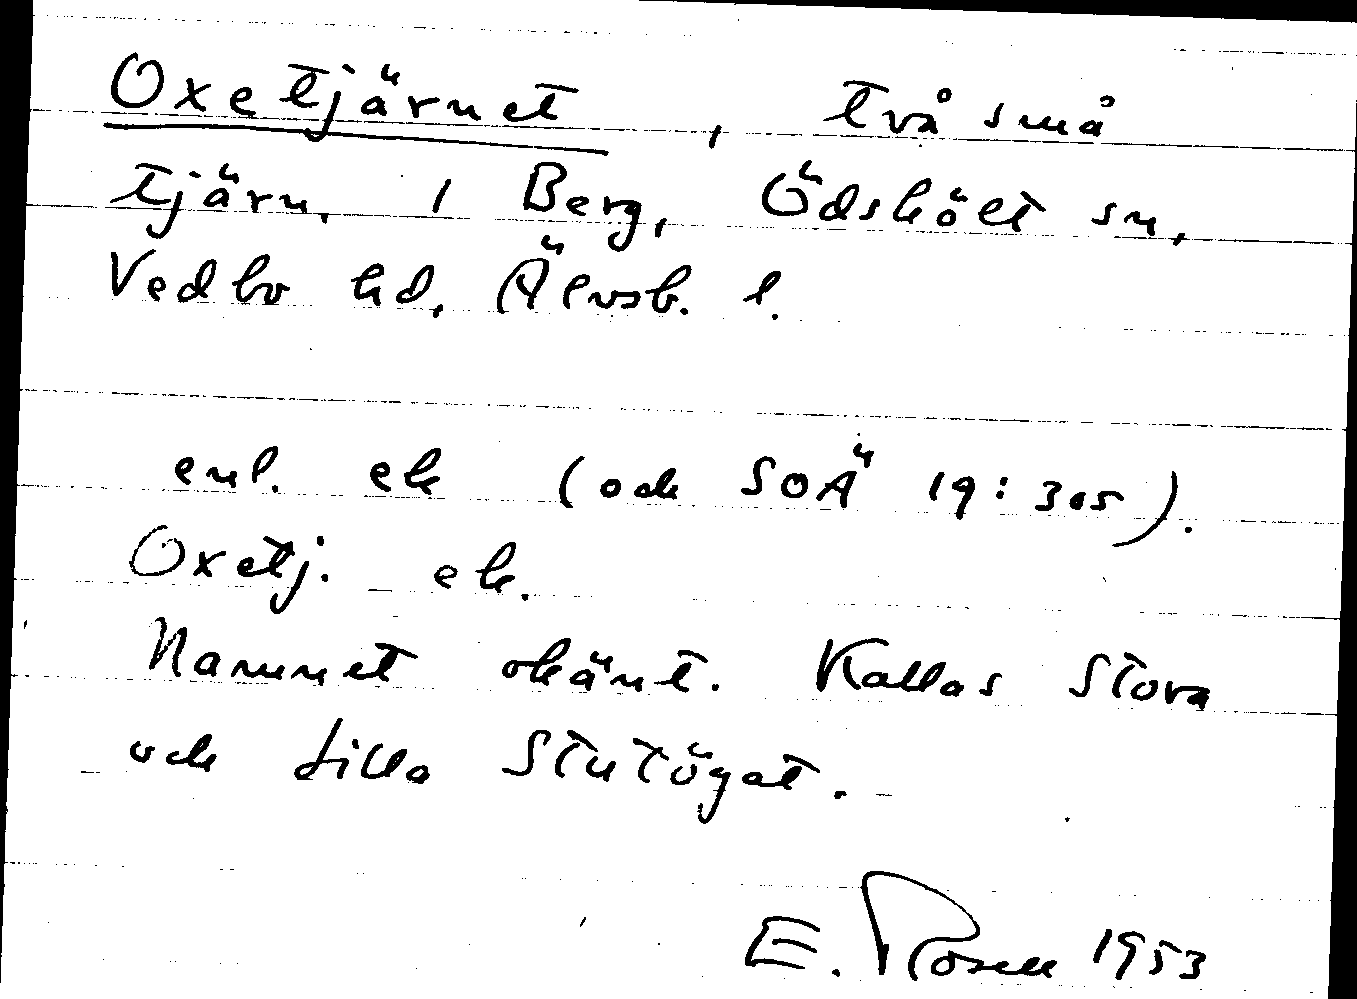 Oxetjärnet, två små
tjärn, i Berg, Ödskölt sn,
Vedbo hd, Älvsb. l.
enl. ek (och SOÄ 19:305).
Oxetj. ek.
Namnet okänt. Kallas Stora
och Lilla Stutögat.
E. Rosell 1953